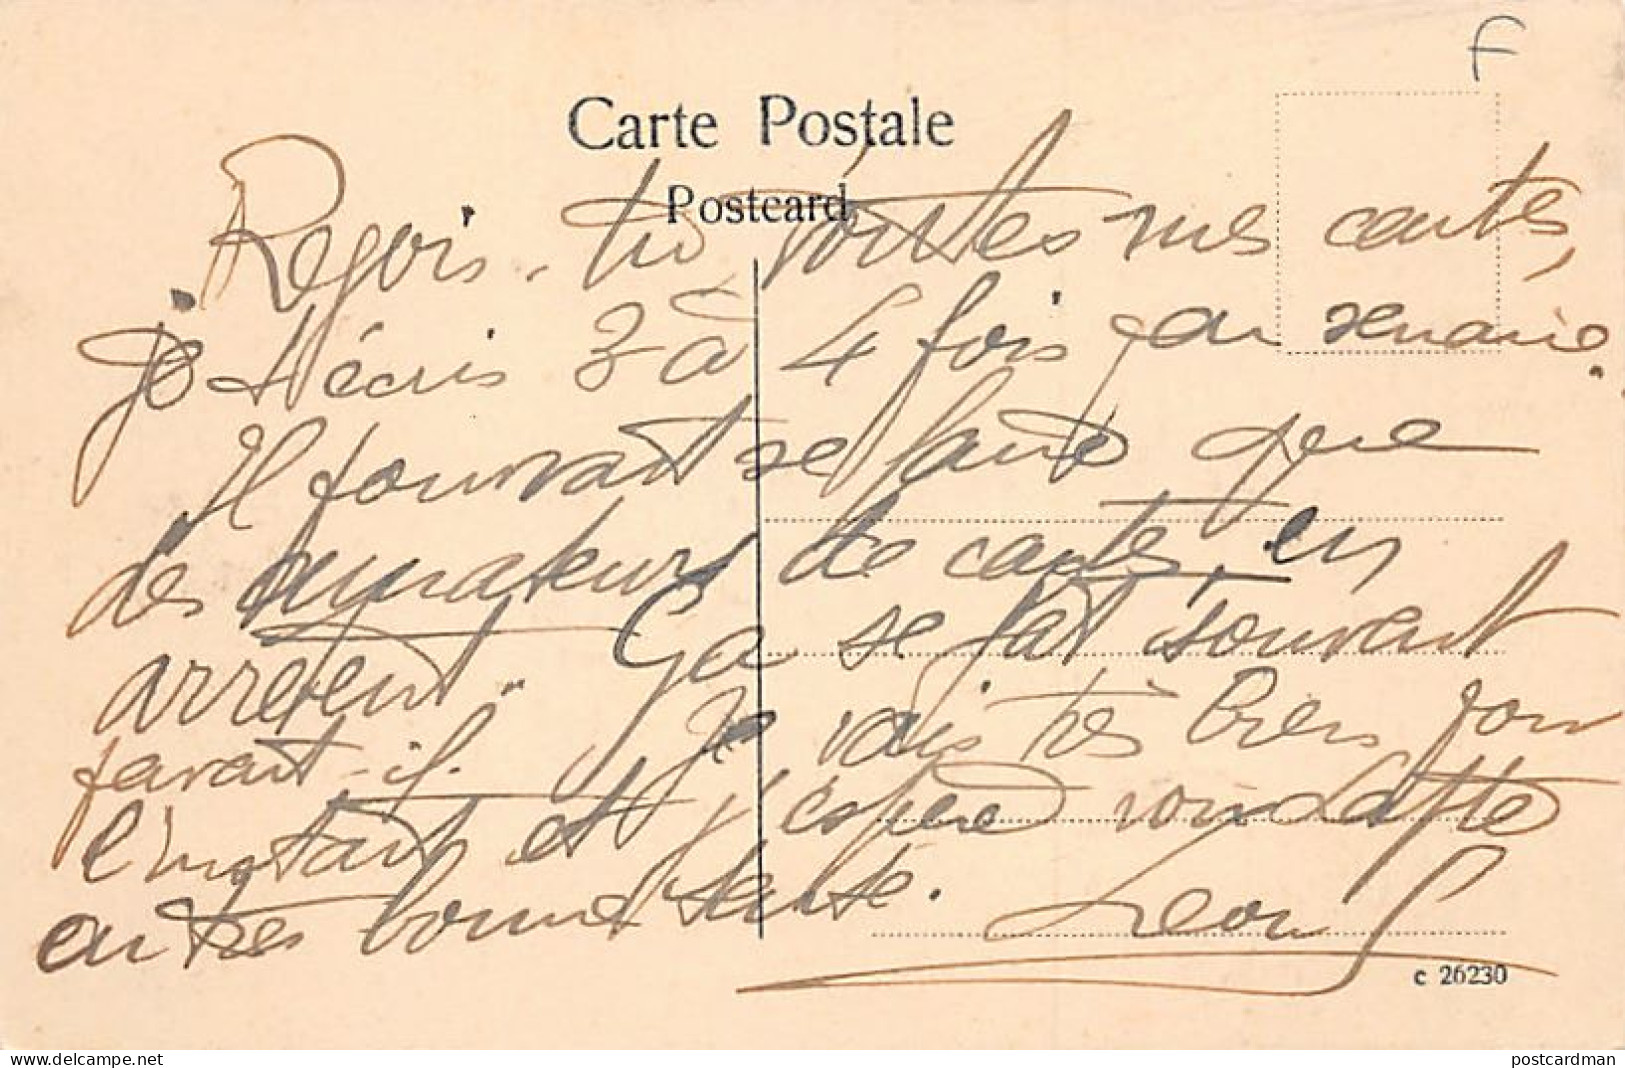 F
Carte Postale
Postcard
Reçois-tu toutes mes cartes,
Je t'écris 3 à 4 fois par semaine.
Il pourrait se faire que
des amateurs de cartes, en
arrêtent. Ça se fait souvent
parait-il. Je vais très bien pour
l'instant et j'espère voir Lafite
en très bonne santé.
Leon
c 26230
www.delcampe.net
postcardman